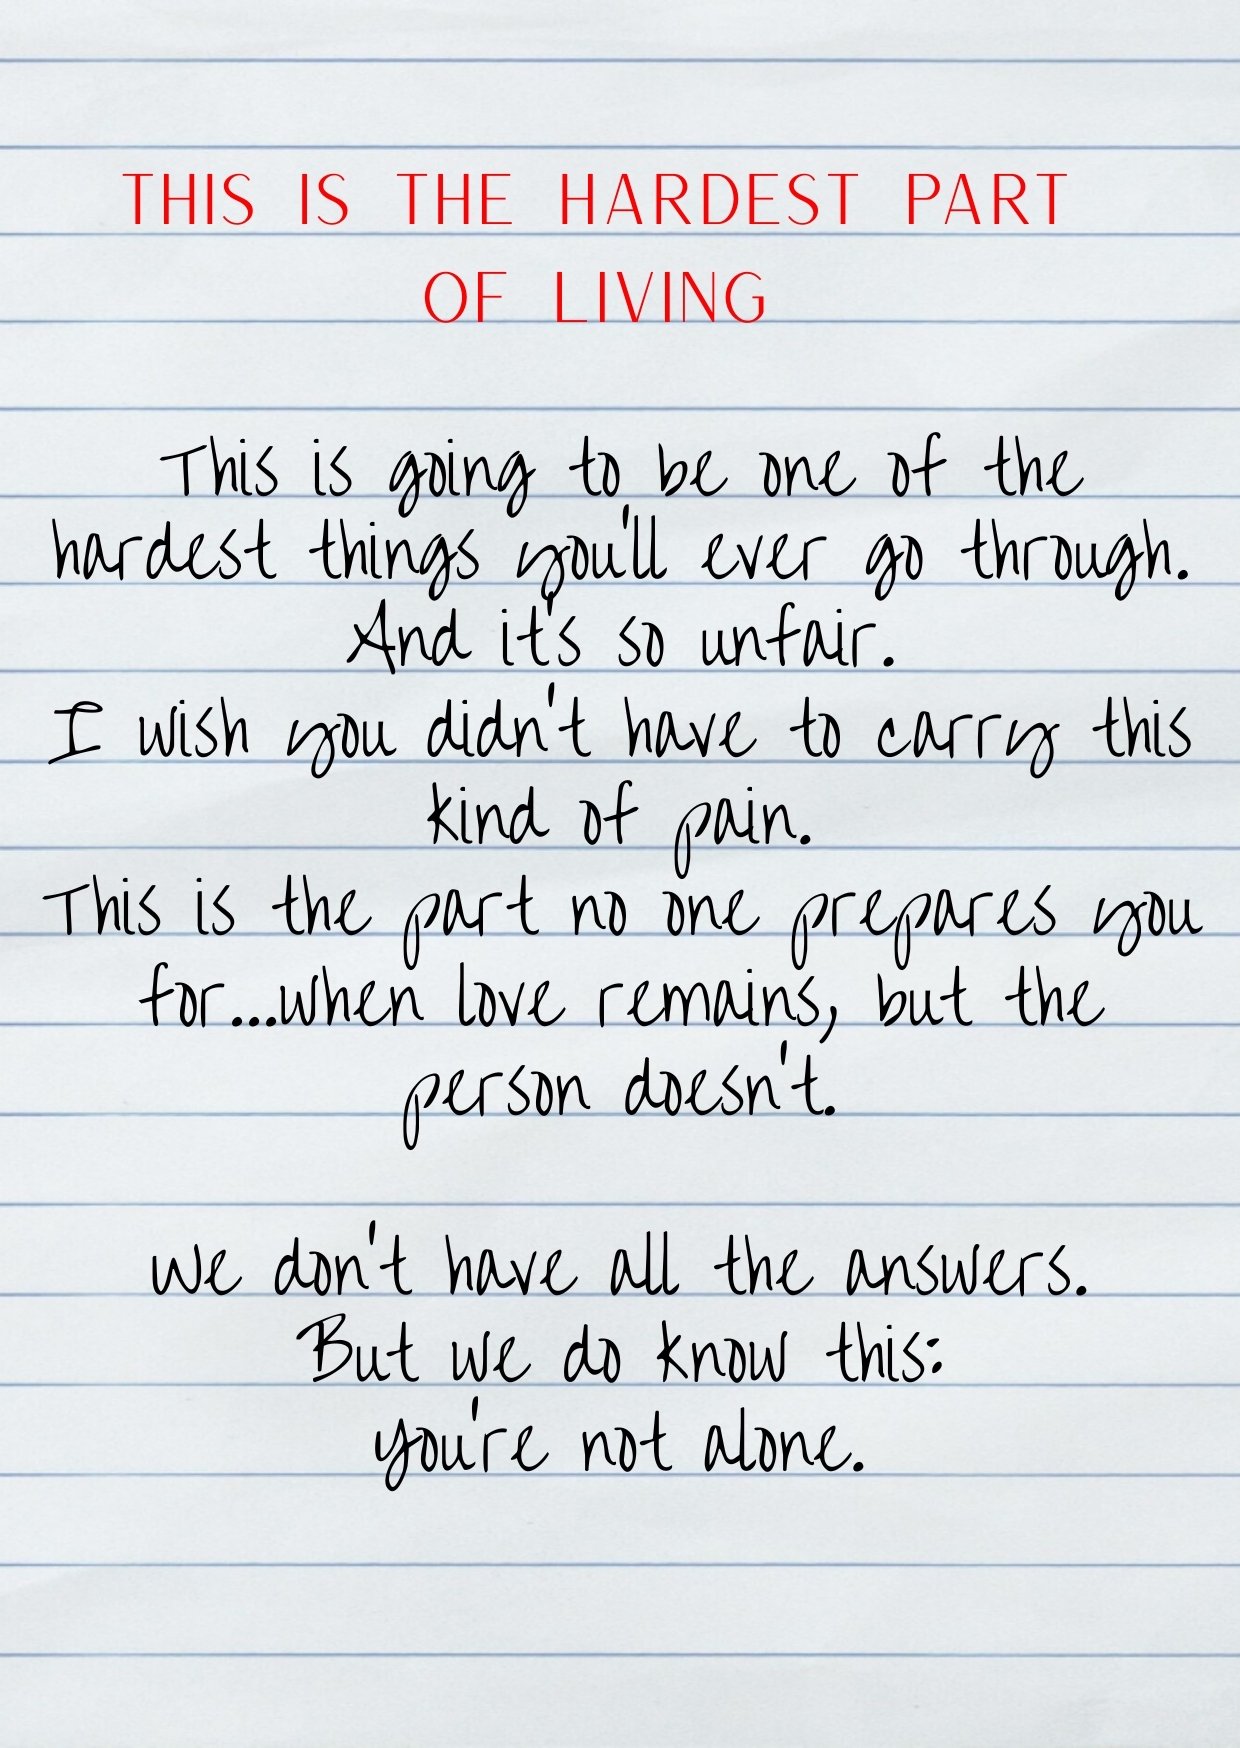 THIS IS THE HARDEST PART
OF LIVING
This is going to be one of the
hardest things you'll ever go through.
And it's so unfair.
I wish you didn't have to carry this
kind of pain.
This is the part no one prepares you
for...when love remains, but the
person doesn't.
We don't have all the answers.
But we do know this:
you're not alone.